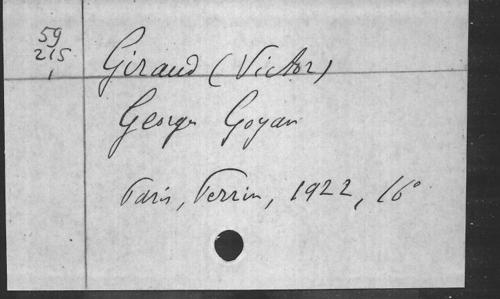 59
215
1
Giraud (Victor)
Georges Goyau
Paris, Perrin, 1922, 16°